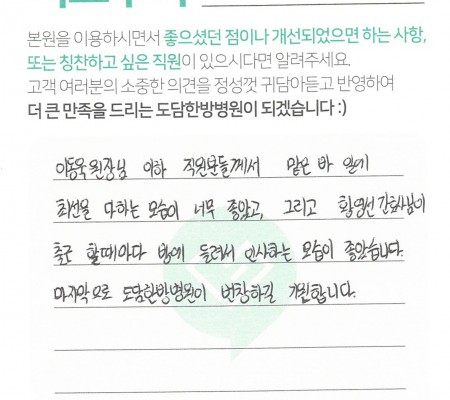 본원을 이용하시면서 좋으셨던 점이나 개선되었으면 하는 사항,
또는 칭찬하고 싶은 직원이 있으시다면 알려주세요.
고객 여러분의 소중한 의견을 정성껏 귀담아듣고 반영하여
더 큰 만족을 드리는 도담한방병원이 되겠습니다 :)
이동욱 원장님 이하 직원분들께서 맡은 바 일에
최선을 다하는 모습이 너무 좋았고, 그리고 황영선 간호사님이
출근 할때마다 방에 들러서 인사하는 모습이 좋았습니다.
마지막으로 도담한방병원이 번창하길 기원합니다.